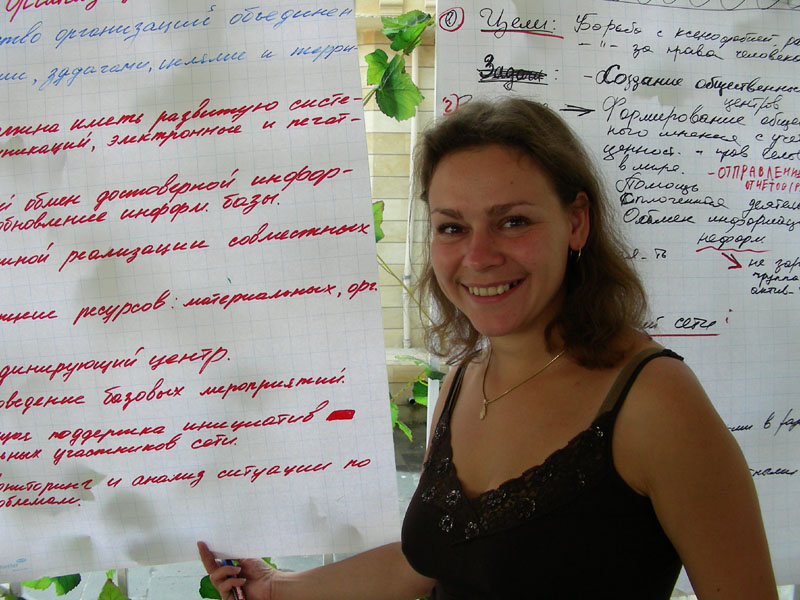 ство организаций объединен
ми, задачами, целями и терри-
лжна иметь развитую систе-
уникаций, электронные и печат-
й обмен достоверной инфор-
обновление информ. базы.
шной реализации совместных
жние ресурсов: материальных, орг.
динирующий центр.
оведение базовых мероприятий.
щая поддержка инициатив
льных участников сети.
ониторинг и анализ ситуации по
облемам.
2 Цели: Борьба с ксенофобией ра
- " - за права человека
Задачи: - Создание общественн
центров
2) → Формирование общес
ного мнения с уче
ценност. - прав чело
в мире.
- ОТПРАВЛЕНИЕ
ОТЧЕТОВ
Помощь
Сплоченная деятель
Обмен информаци
неформ
не зар
группа
актив-
ий сети: